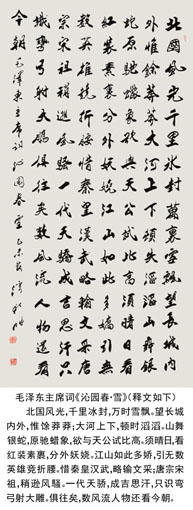 北國風光千里冰封万里雪飘望长城内
外惟馀莽莽大河上下顿失滔滔山舞银
蛇原驰蜡象欲与天公试比高须晴日看
红装素裹分外妖娆江山如此多娇引无
数英雄竞折腰惜秦皇汉武略输文采唐
宗宋祖稍逊风骚一代天骄成吉思汗只
识弯弓射大雕俱往矣数风流人物还看
今朝 毛泽东主席词沁园春雪 乙未
毛泽东主席词《沁园春·雪》(释文如下)
北国风光,千里冰封,万时雪飘。望长城
内外,惟馀莽莽;大河上下,顿时滔滔。山舞
银蛇,原驰蜡象,欲与天公试比高。须晴日,看
红装素裹,分外妖娆。江山如此多娇,引无数
英雄竞折腰。惜秦皇汉武,略输文采;唐宗宋
祖,稍逊风骚。一代天骄,成吉思汗,只识弯
弓射大雕。俱往矣,数风流人物还看今朝。